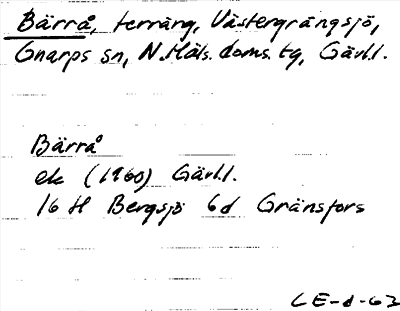 Bärrå, terräng, Västergrängsjö,
Gnarps sn, N.Häls. doms. tg, Gävl.l.
Bärrå
ek (1960) Gävl.l.
16 H Bergsjö 6d Gränsfors
CE-d-62